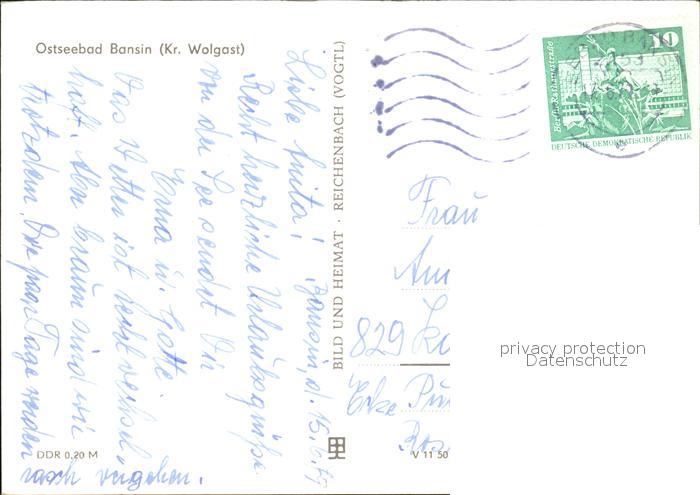 Ostseebad Bansin (Kr. Wolgast)
Bansin, d. 15.6.79
Liebe Anita!
Recht herzliche Urlaubsgrüße
von der See sendet Dir
Erna u. Lotte
Das Wetter ist recht wechsel-
haft. Aber braun sind wir
trotzdem. Die paar Tage werden
rasch vergehen.
DDR 0,20 M
BILD UND HEIMAT · REICHENBACH (VOGTL)
V 11 50
10
Berlin, Rathausstraße
DEUTSCHE DEMOKRATISCHE REPUBLIK
Frau
829
privacy protection
Datenschutz